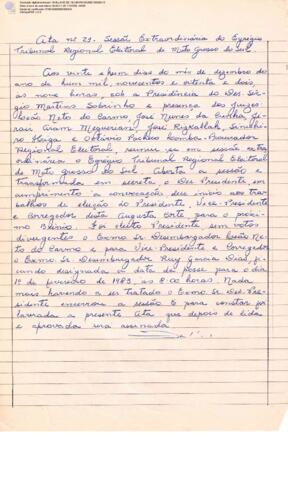 Ata nº 29. Sessão Extraordinária do Egrégio
Tribunal Regional Eleitoral de Mato Grosso do Sul.
Aos vinte e hum dias do mês de dezembro do
ano de hum mil, novecentos e oitenta e dois,
às nove horas, sob a Presidência do Des. Sér-
gio Martins Sobrinho e presença dos Juízes
Leão Neto do Carmo, José Nunes da Cunha,
José Rizkallah,
e Otávio Pacheco Procurador
Regional Eleitoral, reuniu-se em sessão extra
ordinária o Egrégio Tribunal Regional Eleitoral
de Mato grosso do Sul. Aberta a sessão e
transformada em secreta, o Des. Presidente, em
cumprimento a convocação deu início aos tra-
balhos de eleição do Presidente, Vice-Presidente
e Corregedor desta Augusta Corte para o próxi-
mo Biênio. Foi eleito Presidente, sem votos
divergentes o Exmo Sr Desembargador Leão Ne-
to do Carmo e para Vice Presidente e Corregedor
o Exmo Sr Desembargador Ruy Garcia Dias, fi-
cando designada a data da posse para o dia
1º de fevereiro de 1983, às 8:00 horas. Nada
mais havendo a ser tratado o Exmo Sr Des. Pre-
sidente encerrou a sessão. E para constar foi
lavrada a presente Ata que depois de lida
e aprovada será assinada